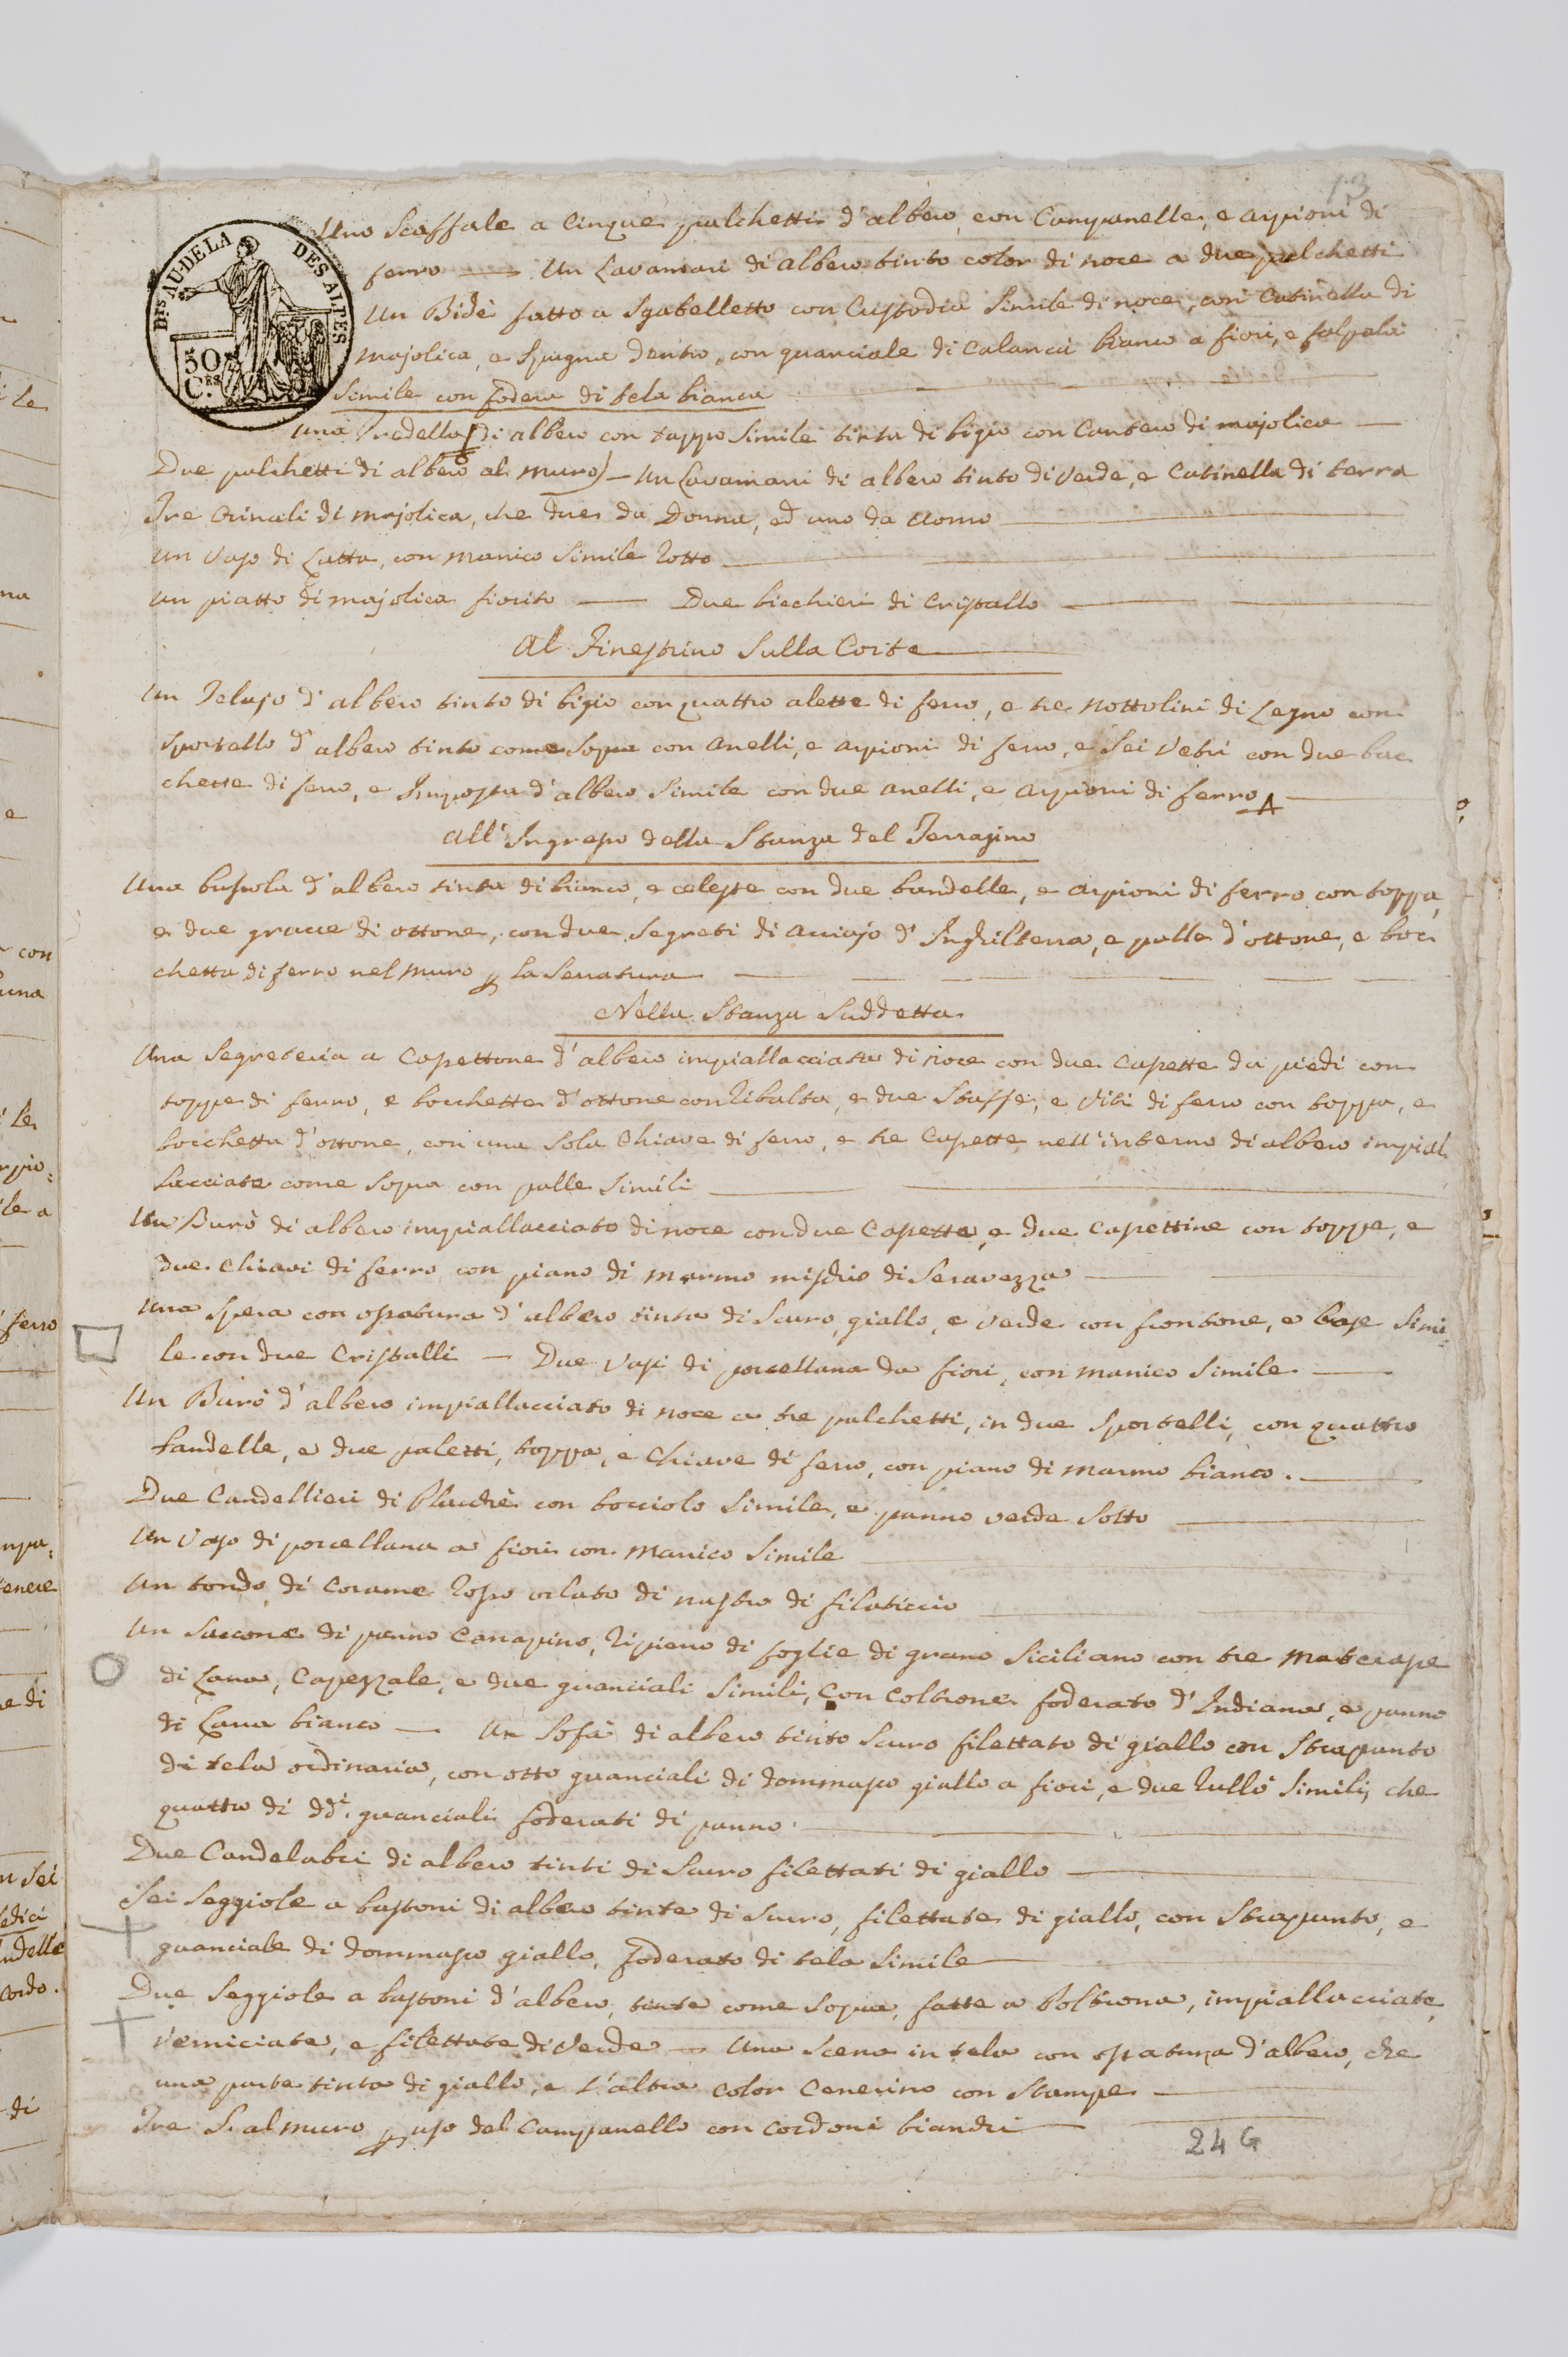 13
DES AU-DE LA DES ALPES
50 Cᴱˢ
Uno Scaffale a Cinque palchetti d'albero, con Campanelle, e arpioni di
ferro — Un Lavamani di albero tinto color di noce a due palchetti
Un Bidè fatto a Sgabelletto con Custodia Simile di noce, con Catinella di
majolica, e Spugna dentro, con guanciale di Calancà bianco a fiori, e falpalà
Simile con fodera di tela bianca
Una Predella di albero con tappo Simile tinta di bigio con Cantero di majolica —
Due palchetti di albero al muro) — Un Lavamani di albero tinto di Verde, e Catinella di terra
Tre Orinali di majolica, che due da Donna, ed uno da Uomo —
Un Vaso di Latta, con manico Simile Rotto —
Un piatto di majolica fiorito — Due bicchieri di Cristallo —
Al Finestrino Sulla Corte
Un Telajo d'albero tinto di bigio con quattro alette di ferro, e tre Nottolini di Legno con
Sportello d'albero tinto come Sopra con Anelli, e arpioni di ferro, e Sei Vetri con due bac
chette di ferro, e Imposta d'albero Simile con due Anelli, e Arpioni di ferro
All'Ingresso della Stanza del Terrazzino
Una bussola d'albero tinta di bianco, e celeste con due bandelle, e arpioni di ferro con toppa,
e due gracce di ottone, con due Segreti di Acciajo d'Inghilterra, e palle d'ottone, e boc
chetta di ferro nel muro p la Serratura —
Nella Stanza Suddetta
Una Segreteria a Cassettone d'albero impiallacciata di noce con due Cassette da piedi con
toppe di ferro, e bocchette d'ottone con Ribalta, e due Staffe, e Viti di ferro con toppa, e
bocchetta d'ottone, con una Sola Chiave di ferro, e tre Cassette nell'interno di albero impial
lacciate come Sopra con palle Simili —
Un Burò di albero impiallacciato di noce con due Cassette, e due Cassettine con toppe, e
due Chiavi di ferro con piano di marmo mischio di Seravezza —
Una Spera con ossatura d'albero tinta di Scuro, giallo, e verde con frontone, e base Simi=
le con due Cristalli — Due Vasi di porcellana da fiori, con manico Simile —
Un Burò d'albero impiallacciato di noce a tre palchetti, in due Sportelli, con quattro
bandelle, e due paletti, toppa, e Chiave di ferro, con piano di marmo bianco. —
Due Candellieri di Placchè con bocciolo Simile, e panno verde Sotto —
Un Vaso di porcellana a fiori con manico Simile
Un tondo di Corame Rosso orlato di nastro di filaticcio
Un Saccone di panno Canapino, Ripieno di foglie di grano Siciliano con tre materasse
di Lana, Capezzale, e due guanciali Simili, Con Coltrone foderato d'Indiana, e panno
di Lana bianco — Un Sofà di albero tinto Scuro filettato di giallo con Strapunto
di tela ordinaria, con otto guanciali di dommasco giallo a fiori, e due Rullò Simili, che
quattro di ddⁱ. guanciali foderati di panno. —
Due Candelabri di albero tinti di Scuro filettati di giallo —
Sei Seggiole a bastoni di albero tinte di Scuro, filettate di giallo, con Strapunto, e
guanciale di dommasco giallo, foderato di tela Simile
Due Seggiole a bastoni d'albero, tinte come Sopra, fatte a Poltrona, impiallacciate,
verniciate, e filettate di Verde — Una Scena in tela con ossatura d'albero, che
una parte tinta di giallo, e l'altra color Cenerino con Stampe —
Tre S. al muro p uso del Campanello con Cordoni bianchi —
24 G